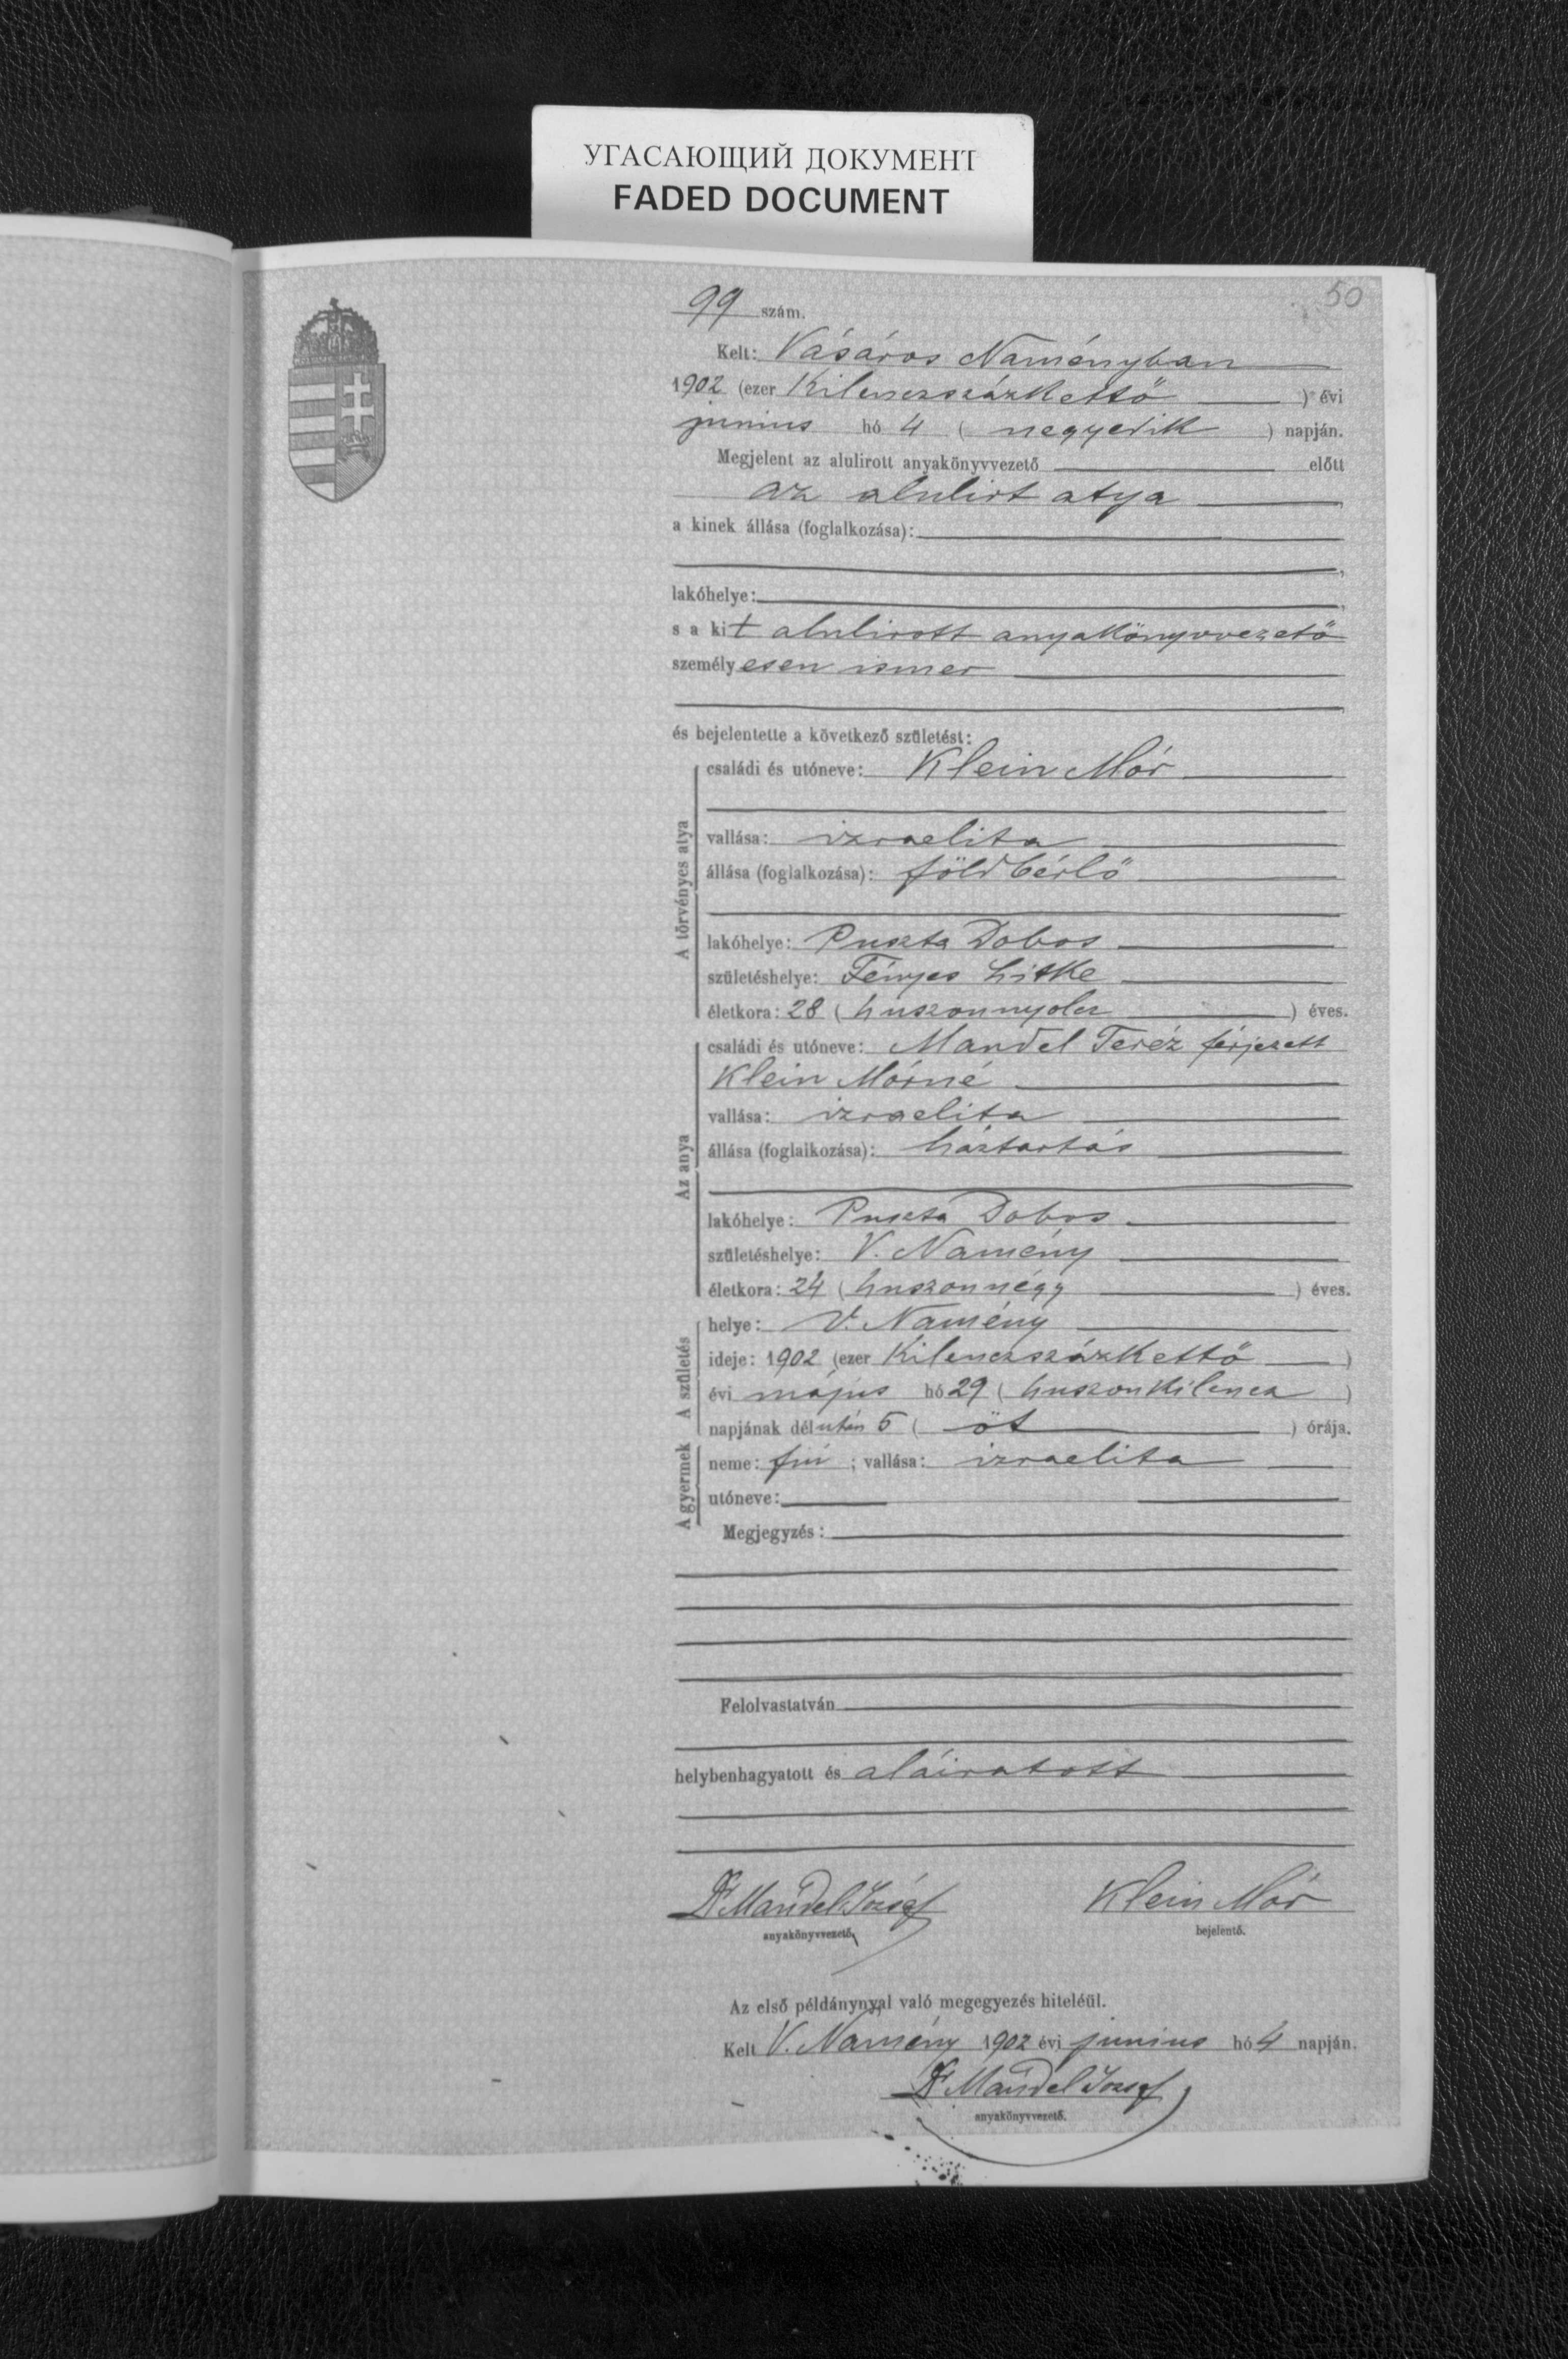 УГАСАЮЩИЙ ДОКУМЕНТ
FADED DOCUMENT
50
99 szám.
Kelt: Vásáros Naményban
1902 (ezer Kilenczszázkettő ) évi
junius hó 4 ( negyedik ) napján.
Megjelent az alulirott anyakönyvvezető előtt
az alulirt atya
a kinek állása (foglalkozása):
lakóhelye:
s a kit alulirott anyakönyvvezető
személyesen ismer
és bejelentette a következő születést:
A törvényes atya
családi és utóneve: Klein Mór
vallása: izraelita
állása (foglalkozása): földbérlő
lakóhelye: Puszta Dobos
születéshelye: Fényes Litke
életkora: 28 ( huszonnyolcz ) éves.
Az anya
családi és utóneve: Mandel Teréz férjezett
Klein Mórné
vallása: izraelita
állása (foglalkozása): háztartás
lakóhelye: Puszta Dobos
születéshelye: V. Namény
életkora: 24 ( huszonnégy ) éves.
A születés
helye: V. Namény
ideje: 1902 (ezer Kilenczszázkettő )
évi május hó 29 ( huszonkilencz )
napjának délután 5 ( öt ) órája.
A gyermek
neme: fiú ; vallása: izraelita
utóneve:
Megjegyzés:
Felolvastatván
helybenhagyatott és aláiratott
Dr Mandel József Klein Mór
anyakönyvvezető. bejelentő.
Az első példánynyal való megegyezés hiteléül.
Kelt V. Namény 1902 évi junius hó 4 napján.
Dr Mandel József
anyakönyvvezető.